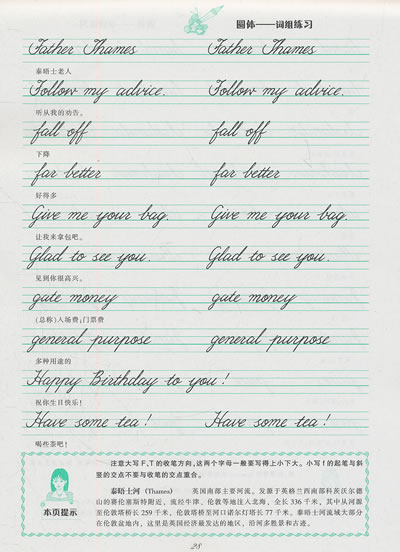 圆体——词组练习
Father Thames Father Thames
泰晤士老人
Follow my advice. Follow my advice.
听从我的劝告。
fall off fall off
下降
far better far better
好得多
Give me your bag. Give me your bag.
让我来拿包吧。
Glad to see you. Glad to see you.
见到你很高兴。
gate money gate money
(总称)入场费;门票费
general purpose general purpose
多种用途的
Happy Birthday to you!
祝你生日快乐!
Have some tea! Have some tea!
喝些茶吧!
注意大写F、T的收笔方向,这两个字母一般要写得上小下大。小写f的起笔与斜
竖的交点不要与收笔的交点重合。
泰晤士河 (Thames) 英国南部主要河流。发源于英格兰西南部科茨沃尔德
山的赛伦塞斯特附近、流经牛津、伦敦等地注入北海。全长336千米,其中从河源
至伦敦塔桥长259千米、伦敦塔桥至河口诺尔灯塔长77千米。泰晤士河流域大部分
在伦敦盆地内,这里是英国经济最发达的地区,沿河多胜景和古迹。
本页提示
28